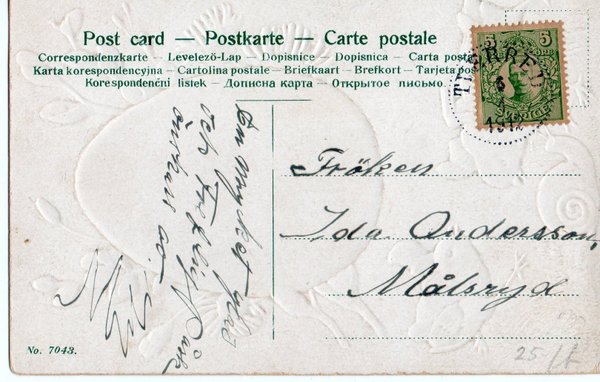 Post card — Postkarte — Carte postale
Correspondenzkarte – Levelező-Lap – Dopisnice – Dopisnica – Carta posta
Karta korespondencyjna – Cartolina postale – Briefkaart – Brefkort – Tarjeta po
Korespondenční listek – Дописна карта – Открытое письмо.
5 5
ÖRE
1912
En mycket glad
och Fröjdlig Påsk
önskas av
Fröken
Ida Andersson,
Målsryd
No. 7043.
25/